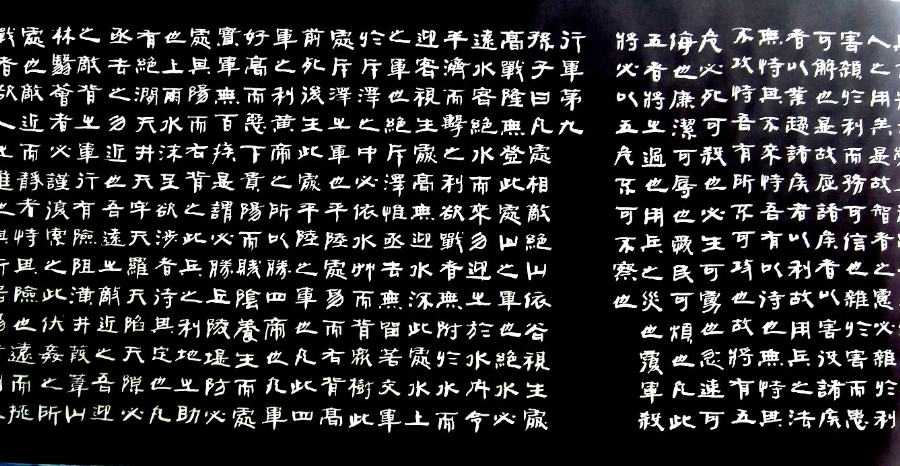 人之用矣是故智者之慮必雜於利
害雜於利而務可信也雜於害而患
可解也是故屈諸侯者以害役諸侯
者以業趨諸侯者以利故用兵之法
無恃其不來恃吾有以待也無恃其
不攻恃吾有所不可攻也故將有五
危必死可殺也必生可虜也忿速可
侮也廉潔可辱也愛民可煩也凡此
五者將之過也用兵之災也覆軍殺
將必以五危不可不察也
行軍第九
孫子曰凡處相敵絕山依谷視生處
高戰隆無登此處山之軍也絕水必
遠水客絕水而來勿迎之於水內令
半濟而擊之利欲戰者無附於水而
迎客視生處高無迎水流此處水上
之軍也絕斥澤惟亟去無留若交軍
於斥澤之中必依水草而背眾樹此
處斥澤之軍也平陸處易而右背高
前死後生此處平陸之軍也凡此四
軍之利黃帝之所以勝四帝也凡軍
好高而惡下貴陽而賤陰養生而處
實軍無百疾是謂必勝丘陵堤防必
處其陽而右背之此兵之利地之助
也上雨水沫至欲涉者待其定也凡
有絕澗天井天牢天羅天陷天隙必
亟去之勿近也吾遠之敵近之吾迎
之敵背之軍行有險阻潢井葭葦山
林翳薈者必謹復索之此伏姦之所
處也敵近而靜者恃其險也遠而挑